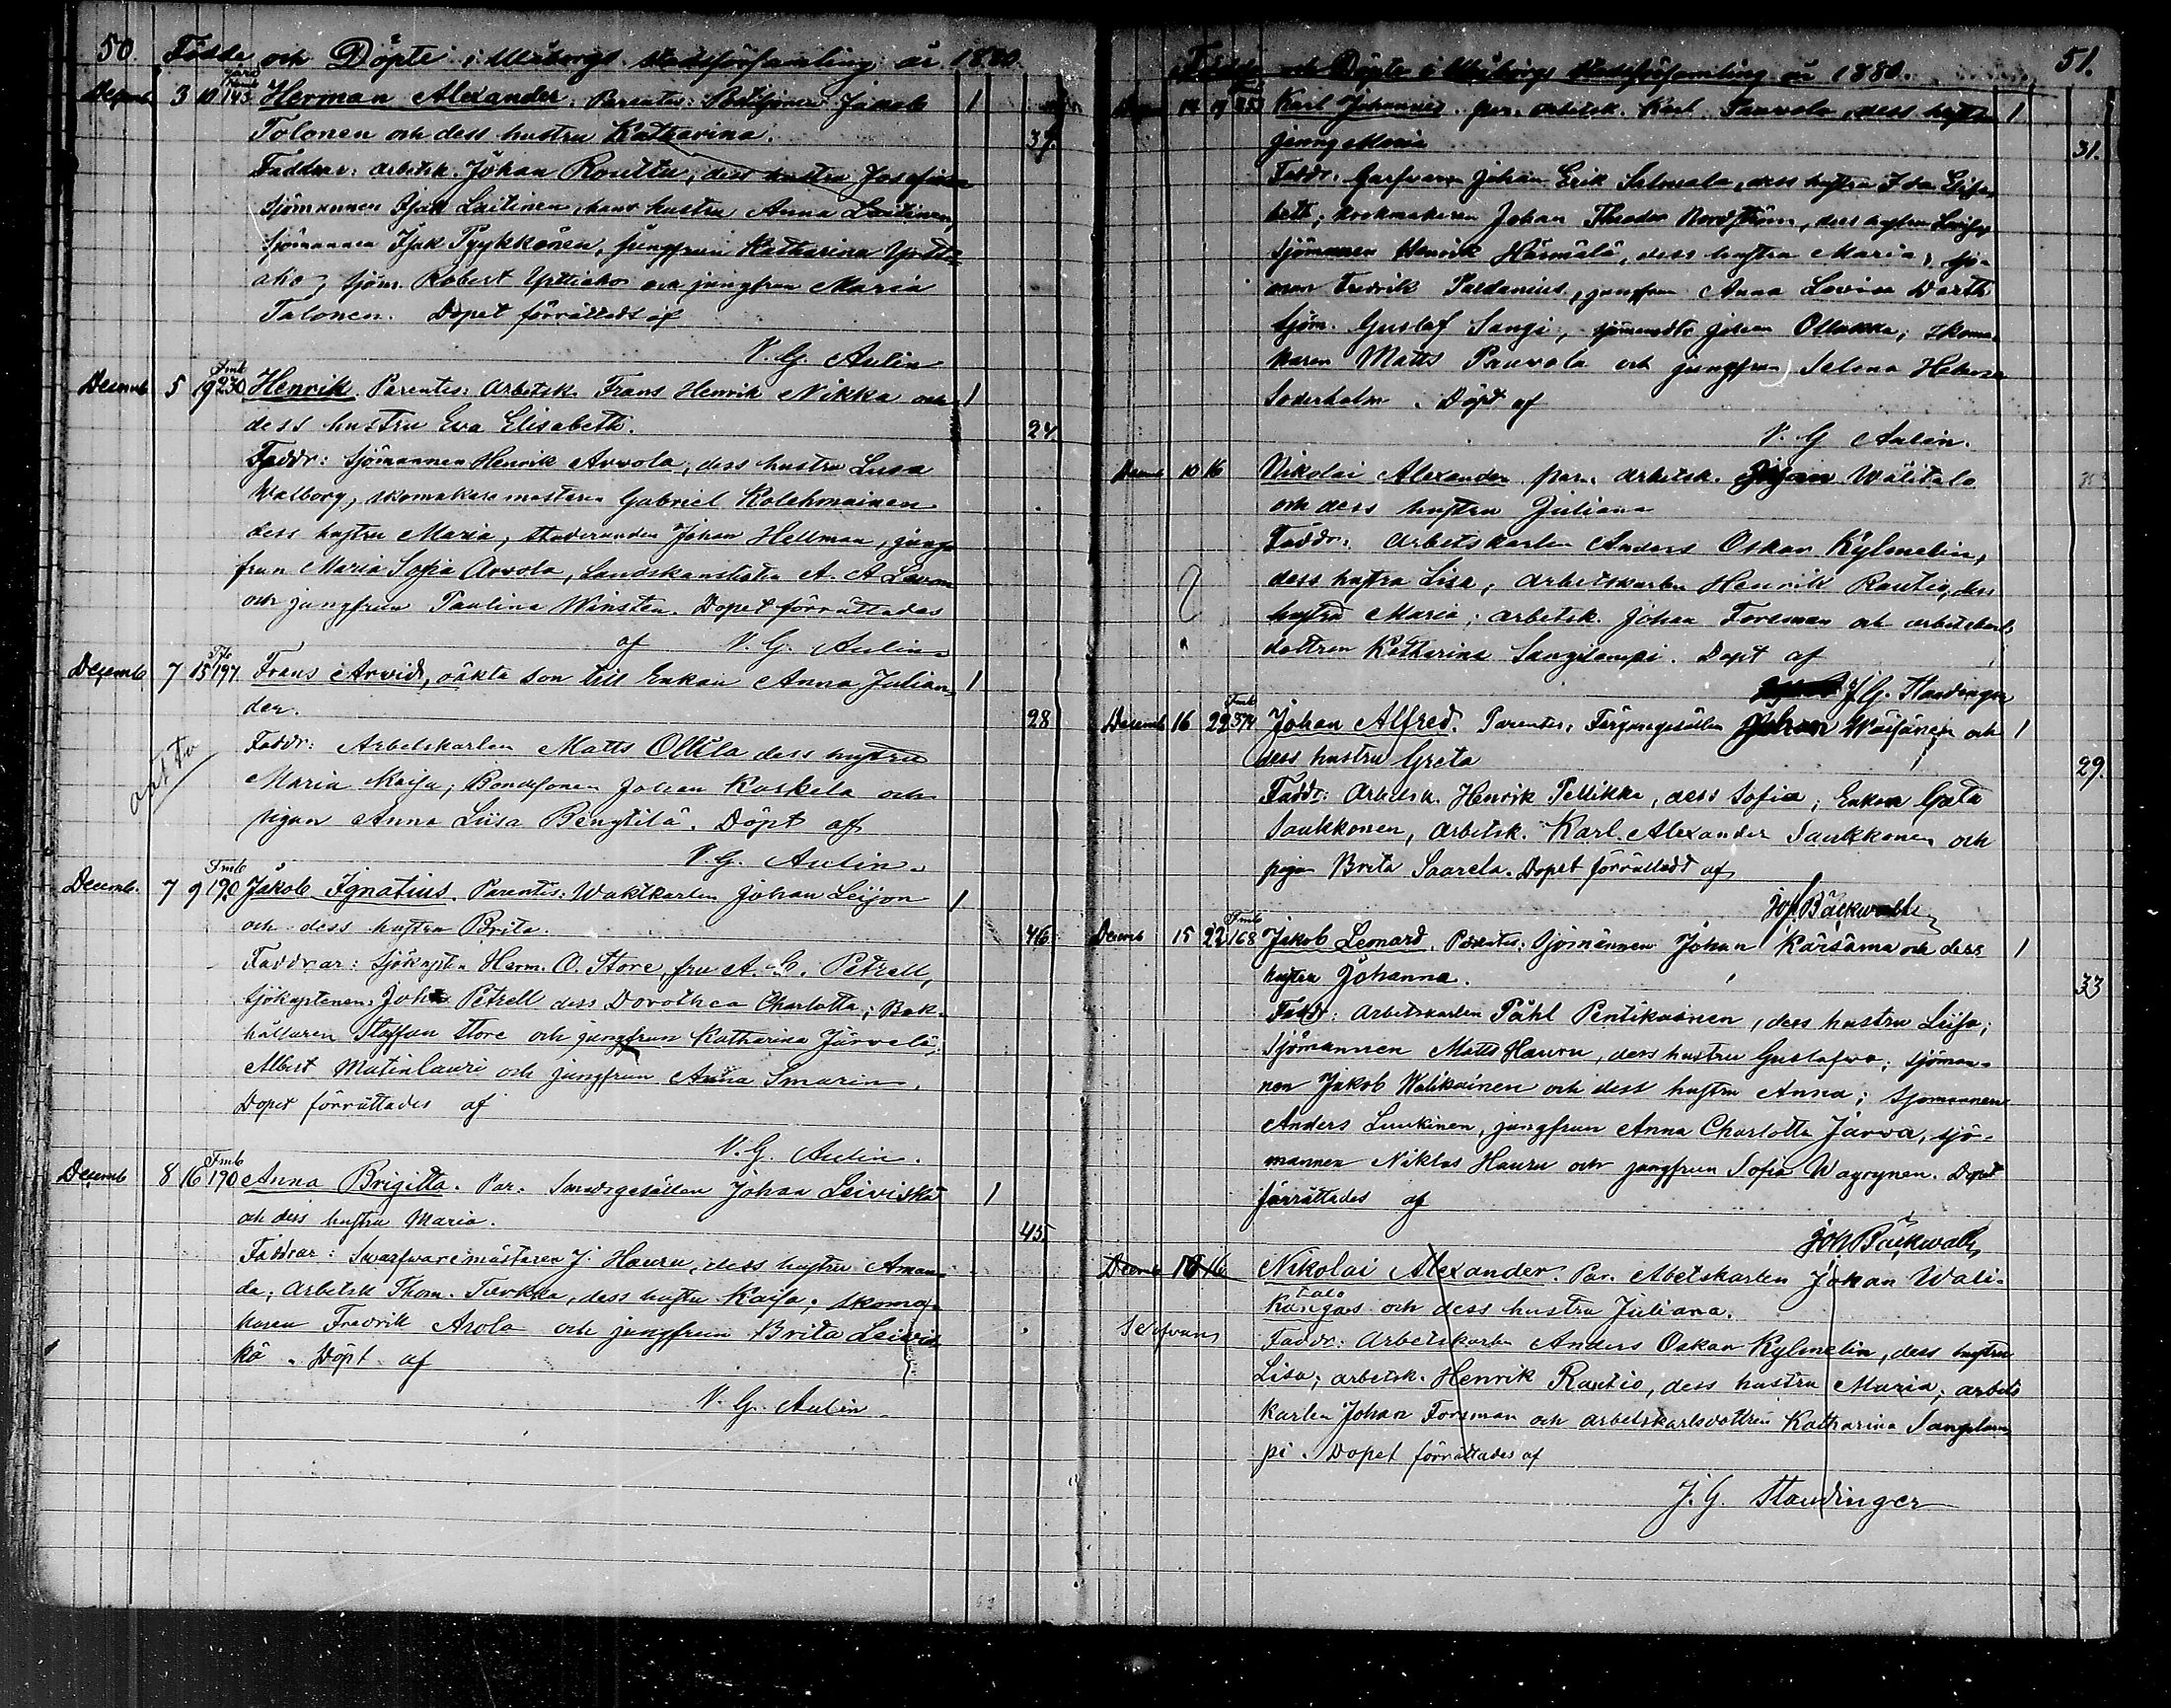 50. Födde och Döpte i Uleåborgs stadsförsamling år 1880.
Decemb. 3 10 143 Herman Alexander. Parentes: Postiljonen Jakob 1
Tolonen och dess hustru Katharina. 37.
Faddrar: arbetsk. Johan Routtu, dess hustru Josefina
Sjömannen Isak Laitinen, hans hustru Anna Laitinen,
Sjömannen Isak Pyykkönen, jungfrun Katharina Yrtti-
aho, sjöm. Robert Yrttiaho och jungfrun Maria
Tolonen. Dopet förrättadt af
V. G. Aulin
Decemb 5 19 230 Henrik. Parentes: Arbetsk. Frans Henrik Nikka och 1
dess hustru Eva Elisabeth. 24
Faddr: Sjömannen Henrik Arvola, dess hustru Lusa
Walborg, skomakaremästaren Gabriel Kolehmainen
dess hustru Maria, studeranden Johan Hellman, jung-
frun Maria Sofia Arvola, Landskanslisten A. A
och jungfrun Paulina Winsten. Dopet förrättades
af V. G. Aulin
Decemb. 7 15 197. Frans Arvid, oäkta son till Enkan Anna Julian- 1
der. 28
Faddr: Arbetskarlen Matts Ollila dess hustru
Maria Kaisa; Bondesonen Johan Koskela och
pigan Anna Liisa Bengtilä. Döpt af
V. G. Aulin.
Decemb. 7 9 190 Jakob Ignatius. Parentes: Waktkarlen Johan Leijon 1
och dess hustru Brita. 46.
Faddrar: Sjökapten Herm. O. Store, fru A. C. Petrell,
Sjökaptenen John Petrell dess Dorothea Charlotta; Bok-
hållaren Staffan Store och jungfrun Katharina Järvelä;
Albert Matinlauri och jungfrun Anna Smarin.
Dopet förrättades af
V. G. Aulin.
Decemb 8 16 190 Anna Brigitta. Par: Smedsgesällen Johan Leiviskä 1
och dess hustru Maria. 45.
Faddrar: Swarfwaremästaren J. Hauru, dess hustru Aman-
da; Arbetsk Thom. Turkka, dess hustru Kaisa; skoma-
karen Fredrik Asola och jungfrun Brita Leivis-
kä. Döpt af
V. G. Aulin
Födde och Döpte i Uleåborgs stadsförsamling år 1880. 51.
14 19 253 Karl Johannes. par. arbetsk. Karl Pauvola, dess hustru 1
Jenny Maria 31.
Faddr: Garfvaren Johan Erik Salmsala, dess hustru Ida Elisa-
beth; Johan Theodor Nordström, dess hustru
Sjömannen Henrik Härmälä, dess hustru Maria; sjö-
man Fredrik Paldanius, jungfrun Anna Lovisa
Sjöm. Gustaf Sangi; Johan skoma-
karen Matts Pauvola och jungfrun Selma
Söderholm. Döpt af
V. G Aulin.
Decemb 10 16 Nikolai Alexander par. arbetsk. Johan Wälitalo
och dess hustru Juliana
Faddr: arbetskarlen Anders Oskar Kylmelin,
dess hustru Lisa; arbetskarlen Henrik Rautio, dess
hustru Maria; arbetsk. Johan Forsman och arbetskarls-
dottren Katharina Sangilampi. Döpt af
J. G. Standinger
Decemb 16 22 374 Johan Alfred. Parentes: Färgaregesällen Johan Wäisänen och 1
dess hustru Greta 29.
Faddr: Arbetsk. Henrik Pellikka, dess Sofia; Enkan Greta
Saukkonen, Arbetsk. Karl Alexander Saukkonen och
pigan Brita Saarela. Dopet förrättadt af
Joh Bäckwall
Decemb 15 22 168 Jakob Leonard. Parentes: Sjömannen Johan Kärsämä och dess 1
hustru Johanna. 33
Faddr: Arbetskarlen Påhl Pentikäinen, dess hustru Liisa;
Sjömannen Matts Hauru, dess hustru Gustafwa; sjöman-
nen Jakob Walikainen och dess hustru Anna; Sjömannen
Anders Luukinen, jungfrun Anna Charlotta Järva, sjö-
mannen Niklas Hauru och jungfrun Sofia Wäyrynen. Dopet
förrättades af
Joh Bäckwall
Decemb 10 16 Nikolai Alexander. Par. Abetskarlen Johan Wäli-
talo
kangas och dess hustru Juliana.
Faddr: Arbetskarlen Anders Oskar Kylmelin, dess hustru
Lisa; arbetsk. Henrik Rautio, dess hustru Maria; arbets
karlen Johan Forsman och arbetskarlsdottren Katharina Sangilam
pi. Dopet förrättades af
J. G. Standinger